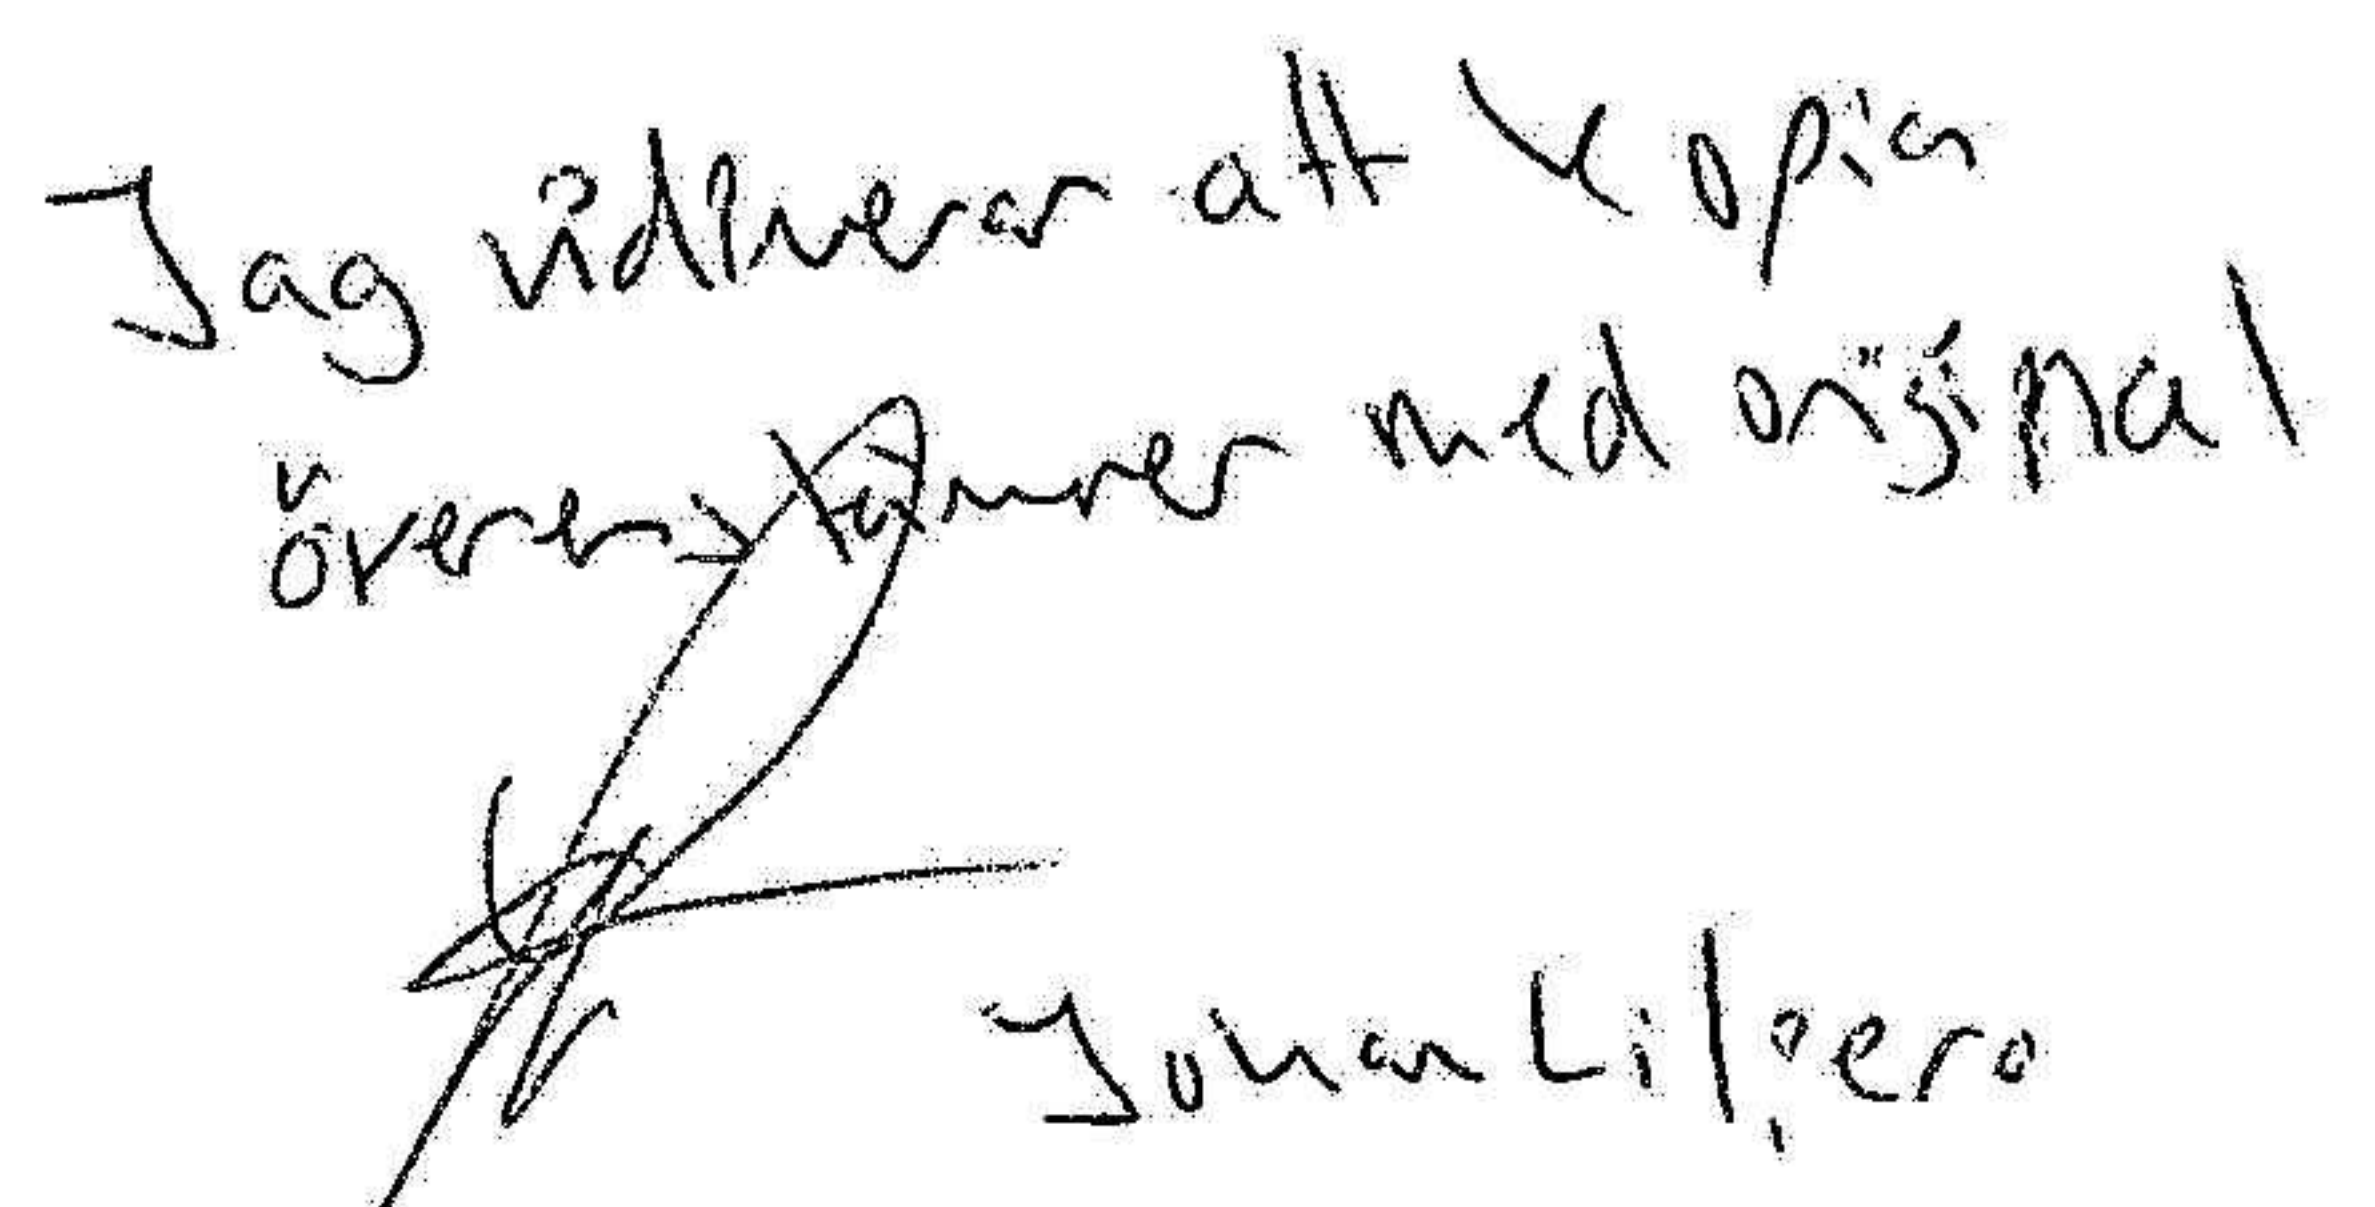 Jag vidimerar att kopian
överenstämmer med original
Johan